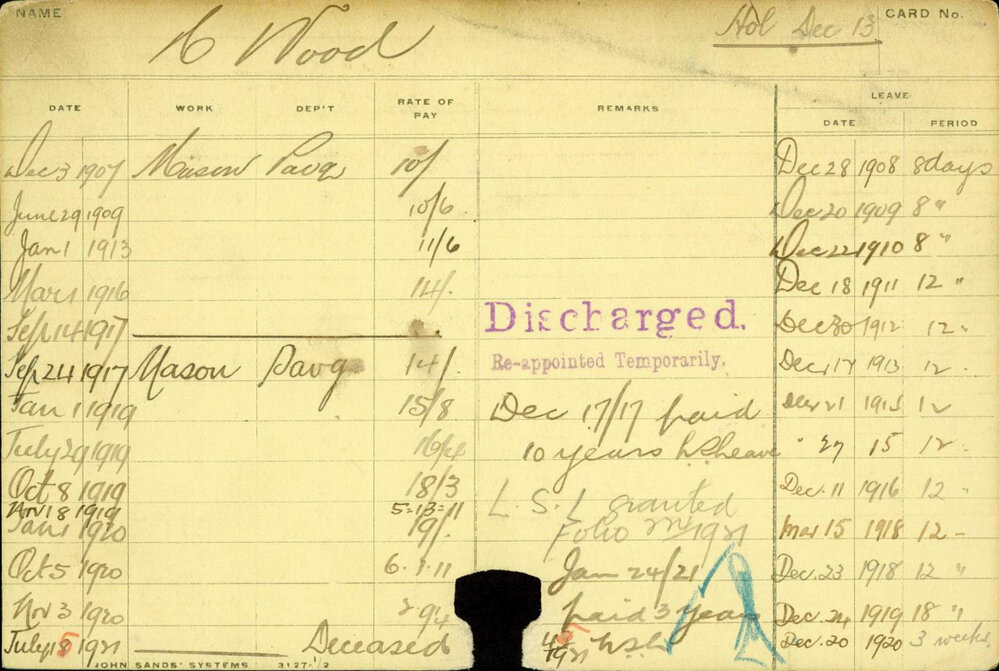 NAME Wood Hol Dec 13 CARD No.
LEAVE
DATE WORK DEP'T RATE OF PAY REMARKS DATE PERIOD
Dec 3 1907 Mason Pavg 10/ Dec 28 1908 8 days
June 29 1909 10/6 Dec 20 1909 8 "
Jan 1 1913 11/6 Dec 22 1910 8 "
Mar 1 1916 14/. Dec 18 1911 12 "
Sep 14 1917 Discharged. Dec 30 1912 12 "
Sep 24 1917 Mason Pavg 14/. Re-appointed Temporarily. Dec 17 1913 12 "
Jan 1 1919 15/8 Dec 17/17 paid 21 1915 12
July 29 1919 16/4 10 years " 27 15 12 "
Oct 8 1919 18/3 L.S.L granted Dec. 11 1916 12 "
Nov 18 1919 5=13=11
Jan 1 1920 19/. Folio 1921 Mar 15 1918 12 -
Oct 5 1920 6.1.11 Jan 24/21 Dec. 23 1918 12 "
Nov 3 1920 paid 3 years Dec. 24 1919 18 "
July 1921 Deceased 1921 Dec. 20 1920 3 weeks
JOHN SANDS' SYSTEMS 3127-1/2